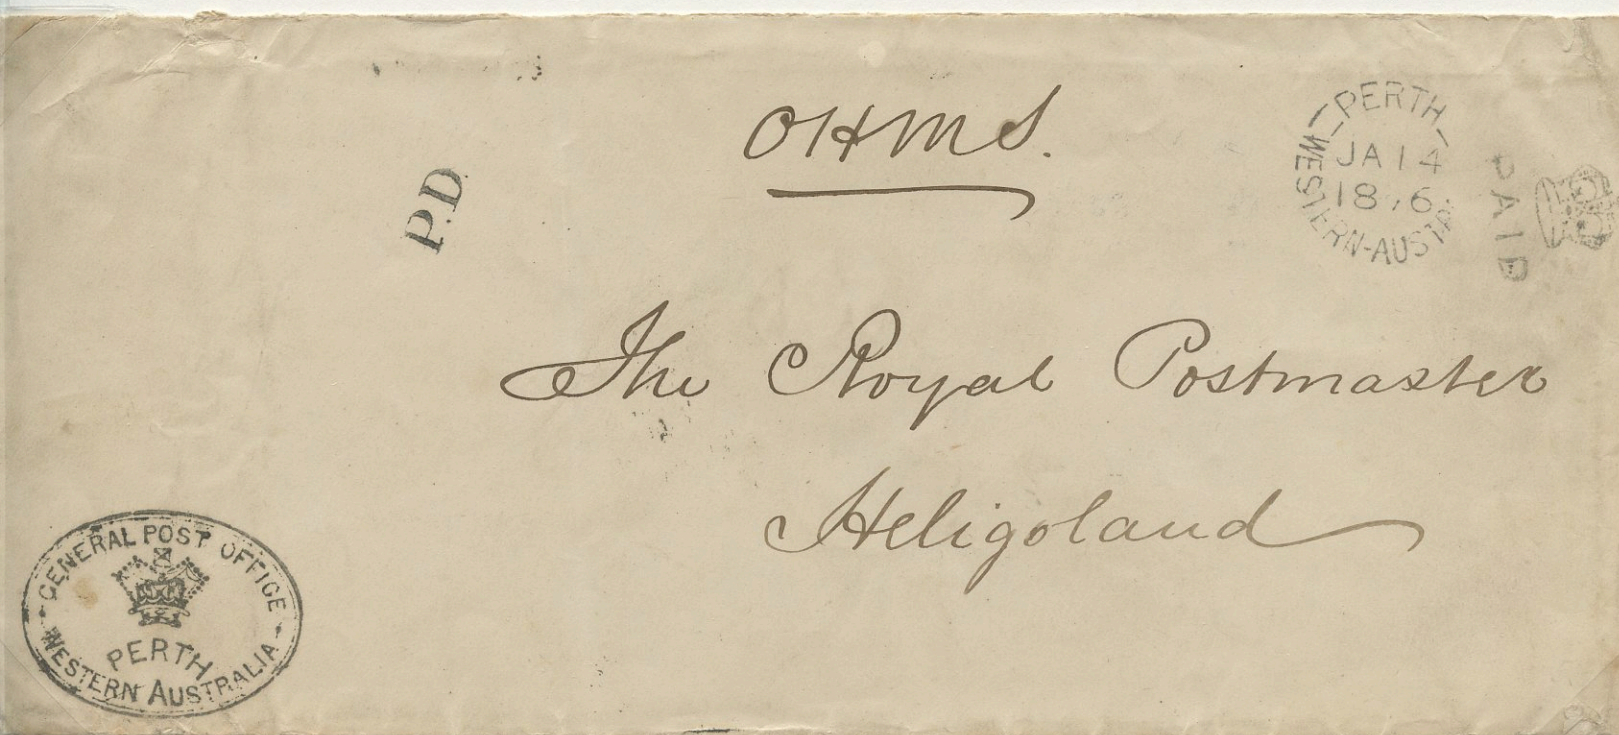 OHMS.
PERTH
WESTERN-AUSTR
JA 14
18 6
PAID
P.D.
The Royal Postmaster
Heligoland
GENERAL POST OFFICE
PERTH
WESTERN AUSTRALIA